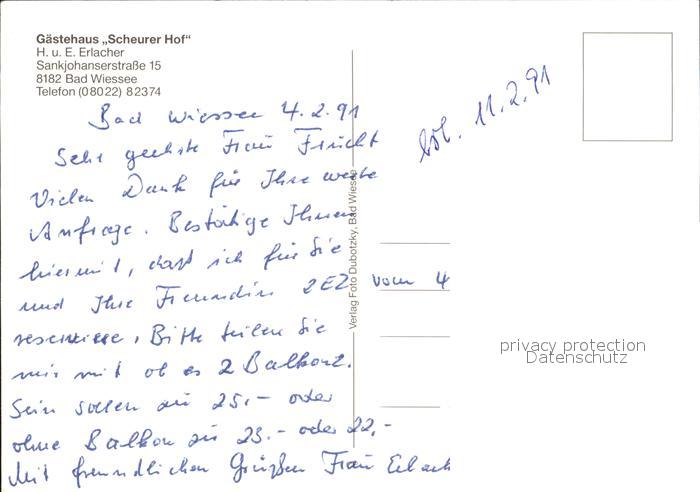 Gästehaus „Scheurer Hof“
H. u. E. Erlacher
Sankjohanserstraße 15
8182 Bad Wiessee
Telefon (0 80 22) 8 23 74
Bad Wiessee 4.2.91
Sehr geehrte Frau Frucht
Vielen Dank für Ihre werte
Anfrage. Bestätige Ihnen
hiermit, daß ich für Sie
und Ihre Freundin 2EZ vom 4
reserviere. Bitte teilen Sie
mir mit ob es 2 Balkonz.
sein sollen zu 25,- oder
ohne Balkon zu 23.- oder 22,-
Mit freundlichen Grüßen Frau
11.2.91
Verlag Foto Dubotzky, Bad Wiessee
privacy protection
Datenschutz